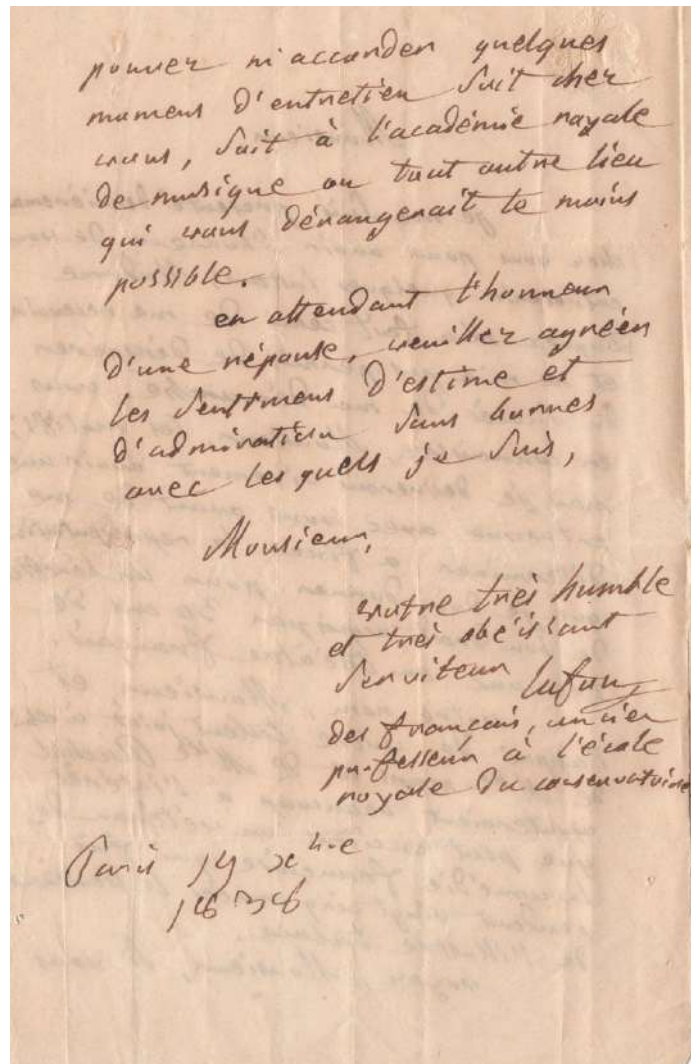 pouvez m'accorder quelques
momens d'entretien soit chez
vous, soit à l'académie royale
de musique ou tout autre lieu
qui vous dérangerait le moins
possible.
en attendant l'honneur
d'une réponse, veuillez agréer
les sentimens d'estime et
d'admiration sans bornes
avec lesquels je suis,
Monsieur,
votre très humble
et très obéissant
serviteur
des français, ancien
professeur à l'école
royale du conservatoire
Paris 19 xbre